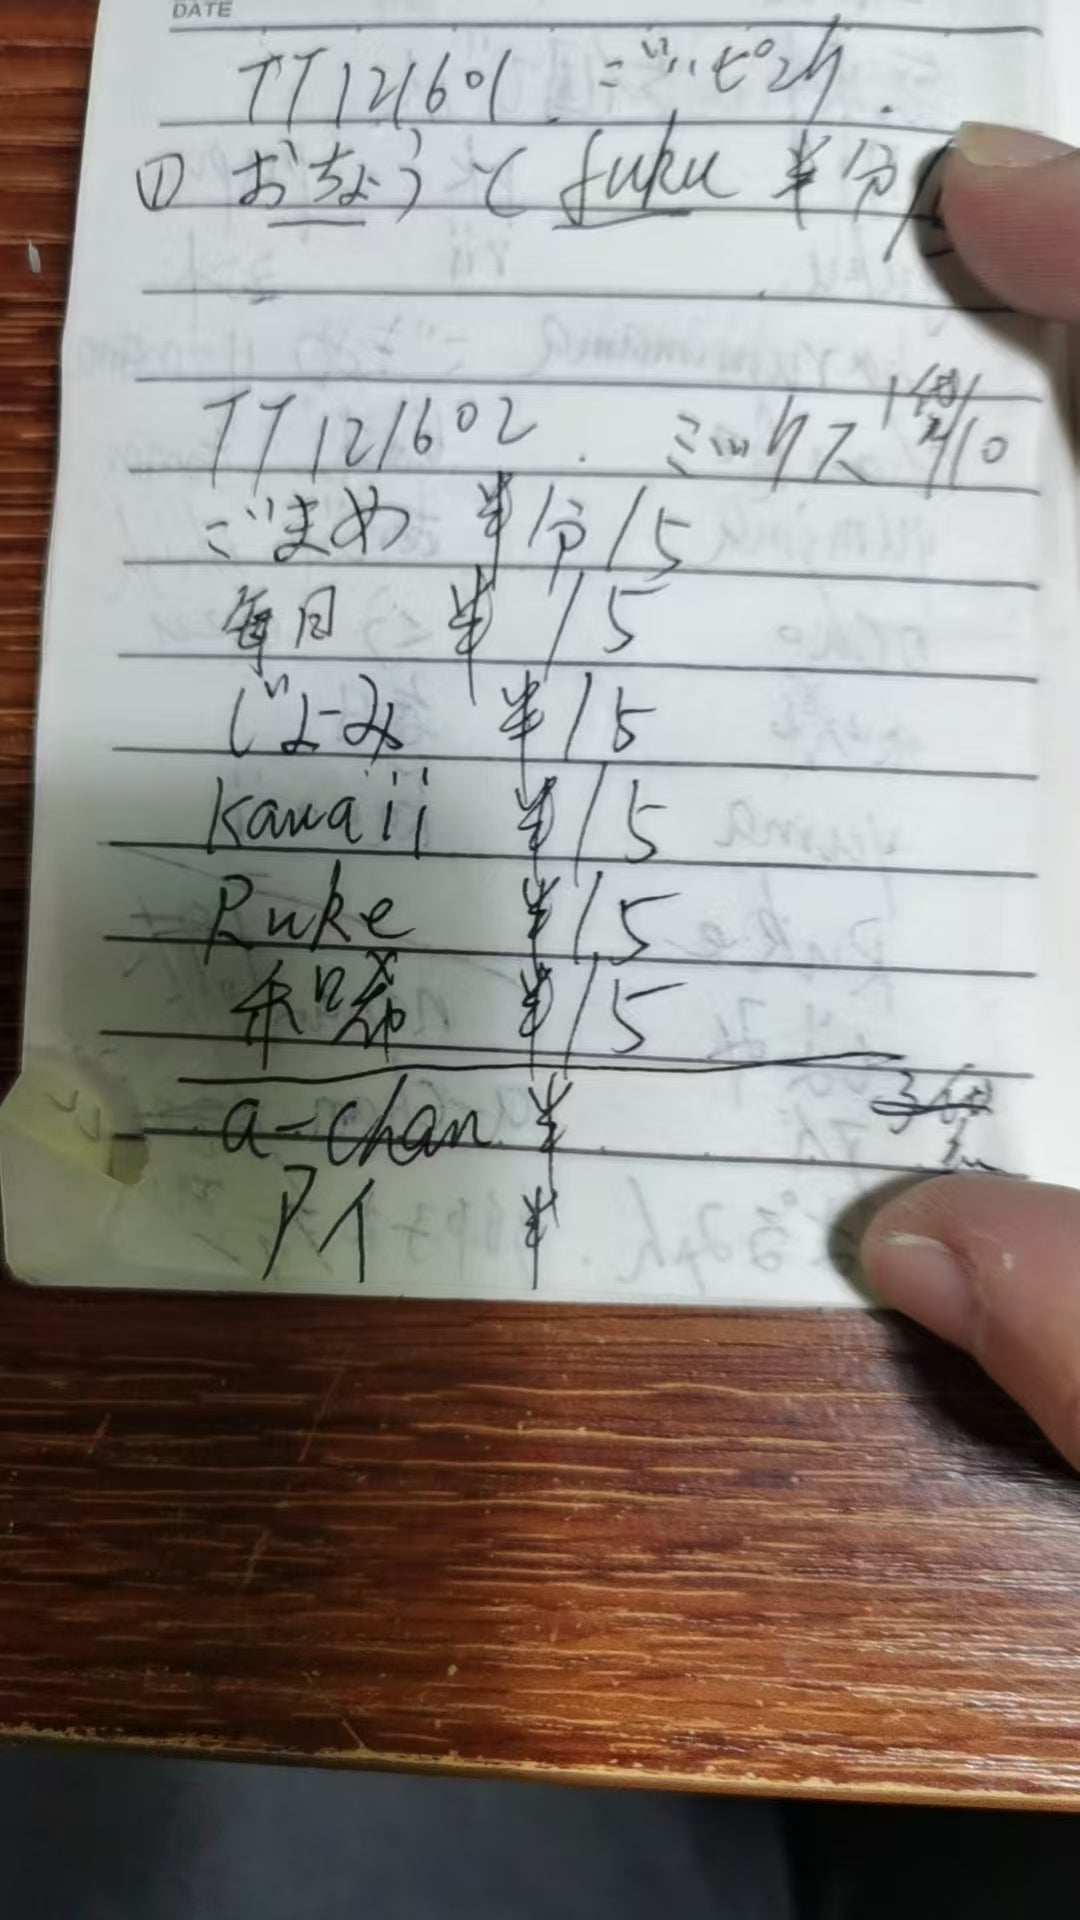 DATE
TT121601
① おちょうと fuku 半分/
TT121602. ミックス /10
ごまめ 半分/5
毎日 半/5
じよーみ 半/5
kawaii 半/5
Ruke 半/5
半/5
a-chan 半
アイ 半